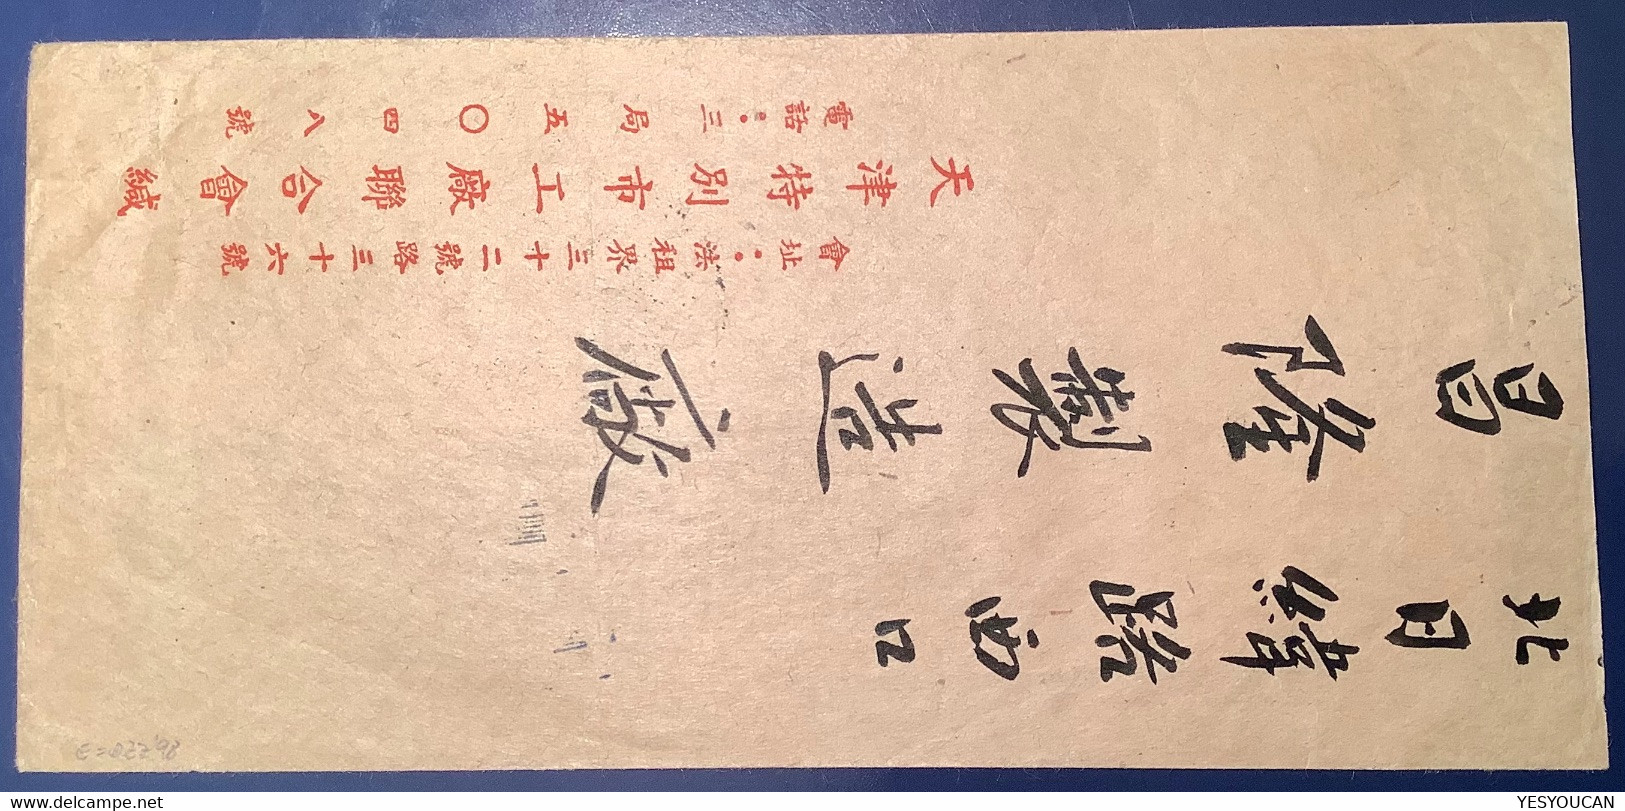 北日緯路西口
昌隆製造廠
會址：法租界三十二號路三十六號
天津特別市工廠聯合會緘
電話：三局五〇四八號
http://www.delcampe.net
YESYOUCAN